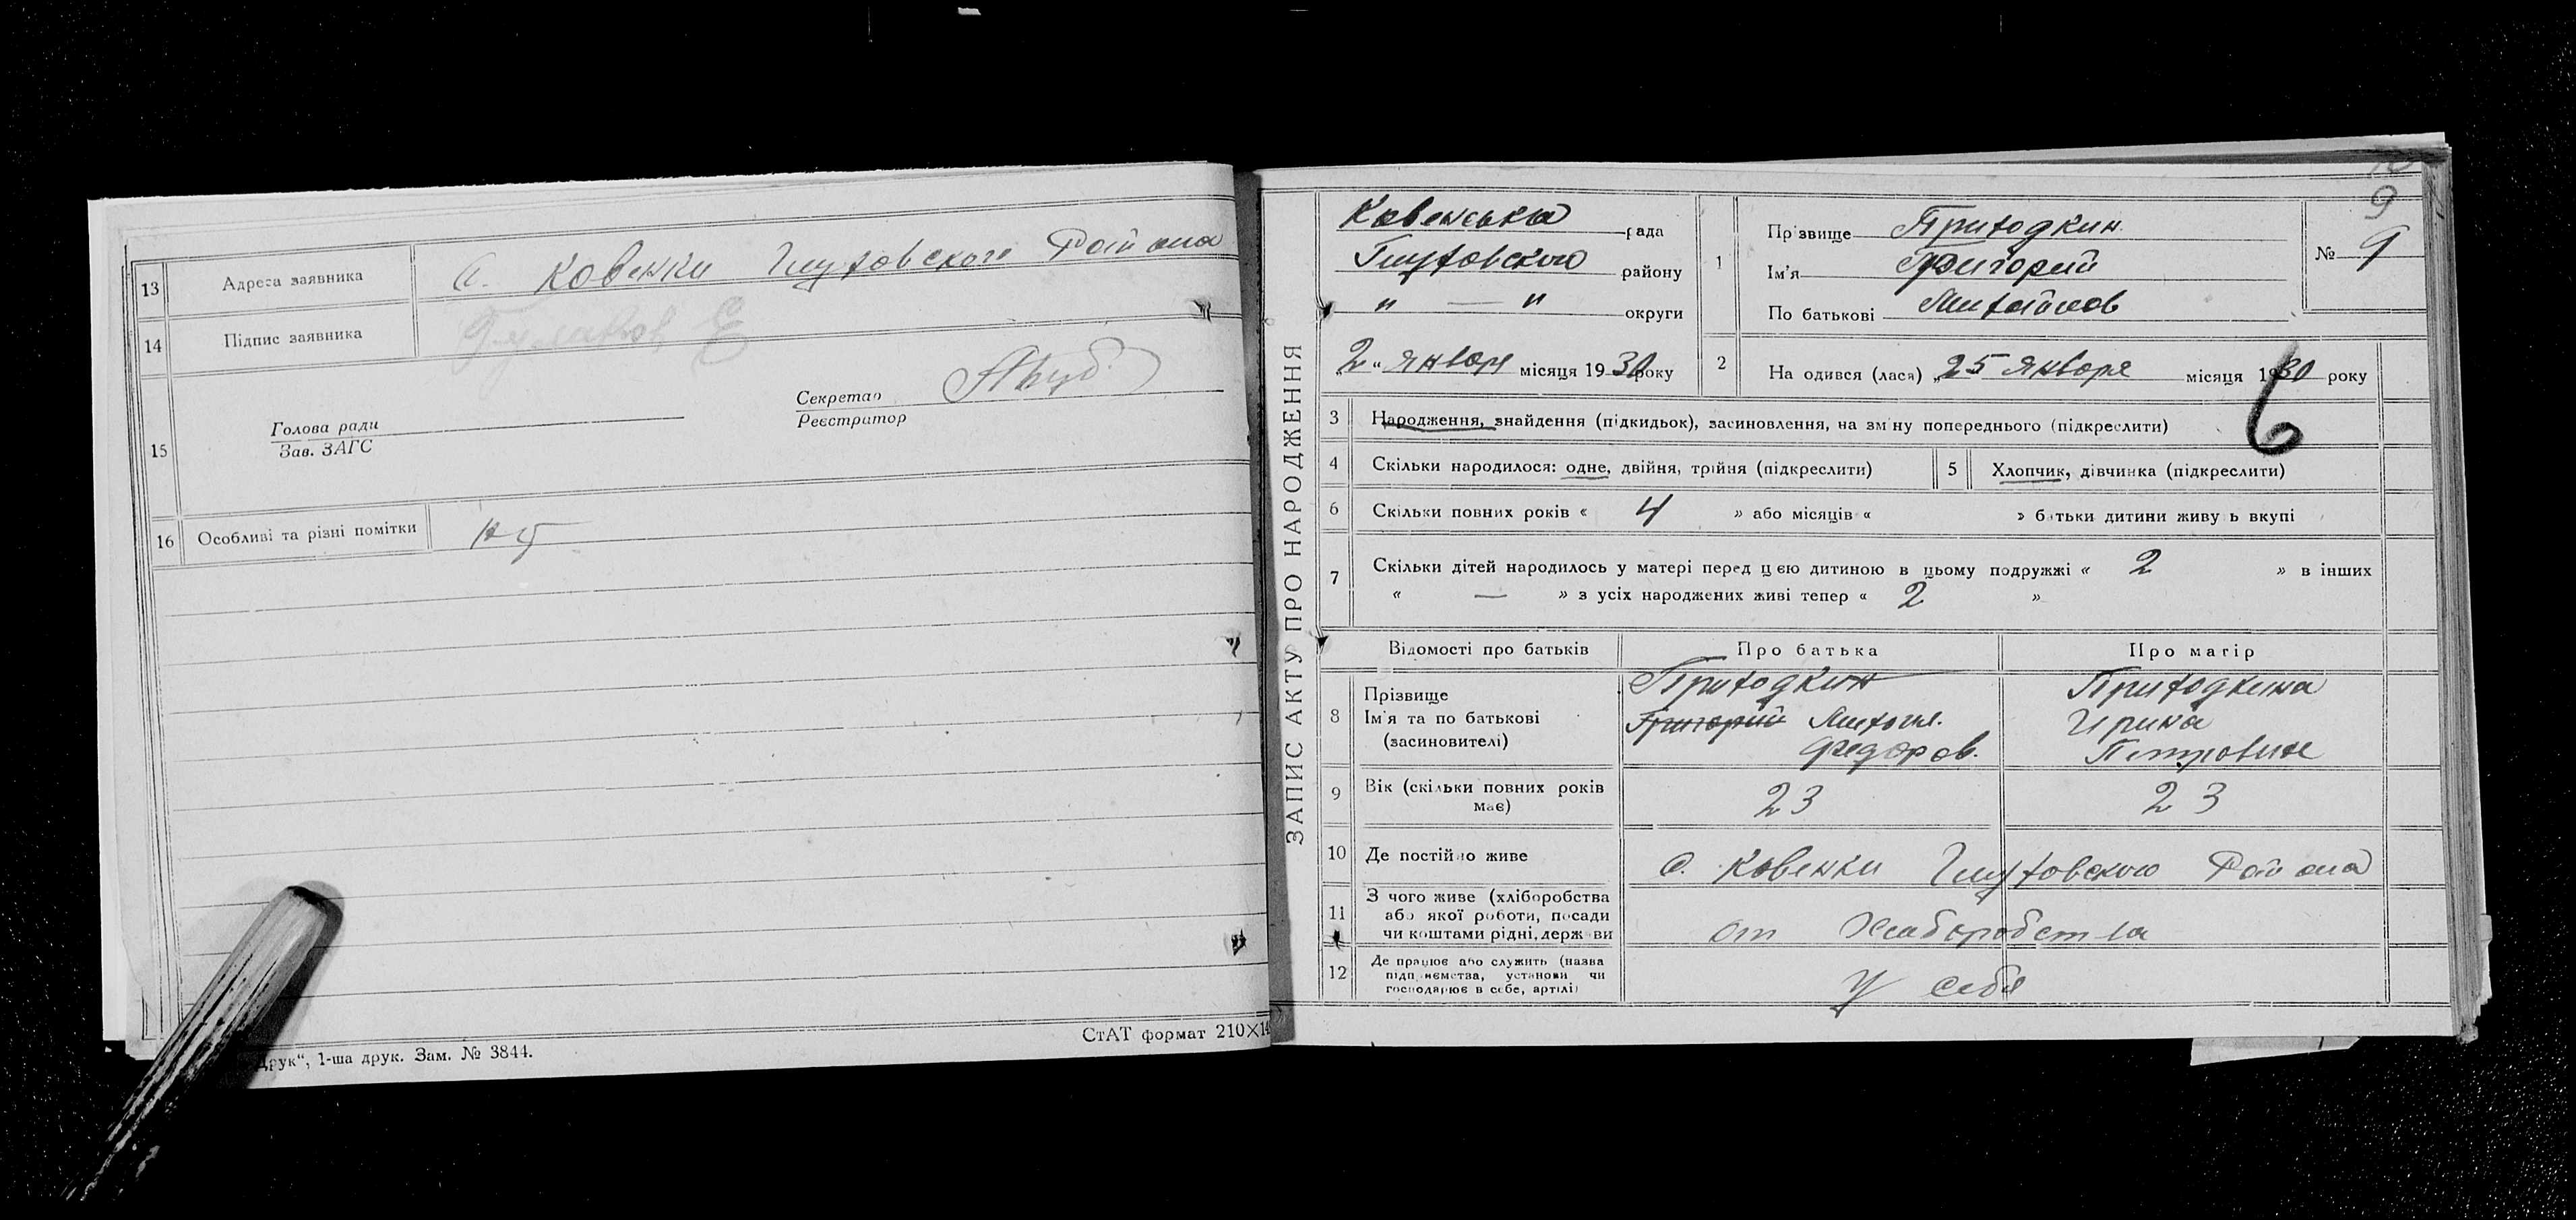 13 Адреса заявника С. Ковенки Глуховского Района
14 Підпис заявника
15 Голова ради
Зав. ЗАГС
Секретар
Реєстратор
16 Особливі та різні помітки
Друк“, 1-ша друк. Зам. № 3844.
СтАТ формат 210×14
ЗАПИС АКТУ ПРО НАРОДЖЕННЯ
9
Ковенська рада
Глуховского району
„ — „ округи
„2“ января місяця 1930 року
1 Прізвище Приходкин
Ім'я Григорий
По батькові Михайлов
№ 9
2 Народився (лася) „25 января місяця 1930 року
6
3 Народження, знайдення (підкидьок), засиновлення, на зміну попереднього (підкреслити)
4 Скільки народилося: одне, двійня, трійня (підкреслити)
5 Хлопчик, дівчинка (підкреслити)
6 Скільки повних років « 4 » або місяців « » батьки дитини живуть вкупі
7 Скільки дітей народилось у матері перед цією дитиною в цьому подружжі « 2 » в інших
« — » з усіх народжених живі тепер « 2 »
Відомості про батьків Про батька Про матір
8 Прізвище
Ім'я та по батькові
(засновителі)
Приходкин
Григорий Михаил.
Федоров.
Приходкина
Ирина
Петровна
9 Вік (скільки повних років
має)
23 23
10 Де постійно живе С. Ковенки Глуховского Района
11 З чого живе (хліборобства
або якої роботи, посади
чи коштами рідні, держави
от Хлаборобства
12 Де працює або служить (назва
підприємства, установи чи
господарює в себе, артілі)
У себя